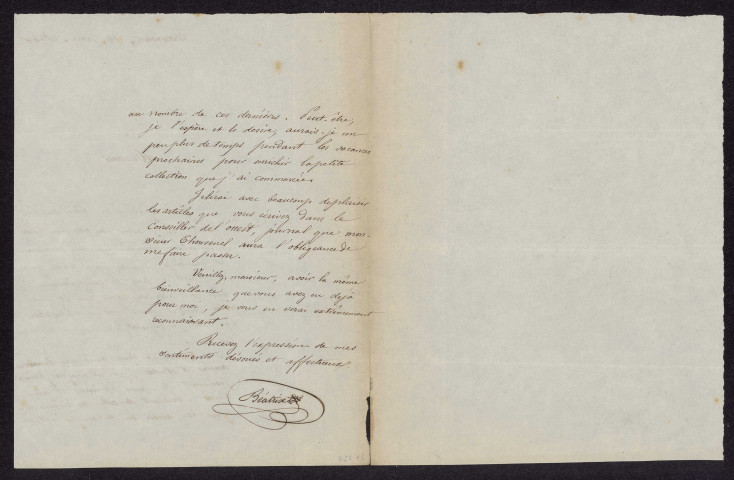 au nombre de ces dernières. Peut-être,
je l'espère et le désire, aurais-je un
peu plus de temps pendant les vacances
prochaines pour enrichir la petite
collection que j'ai commencée.
Je lirai avec beaucoup de plaisir
les articles que vous écrivez dans le
Conseiller de l'ouest, journal que mon-
sieur aura l'obligeance de
me faire passer.
Veuillez, monsieur, avoir la même
bienveillance que vous avez eu déjà
pour moi, je vous en serai extrêmement
reconnaissant.
Recevez l'expression de mes
sentiments dévoués et affectueux